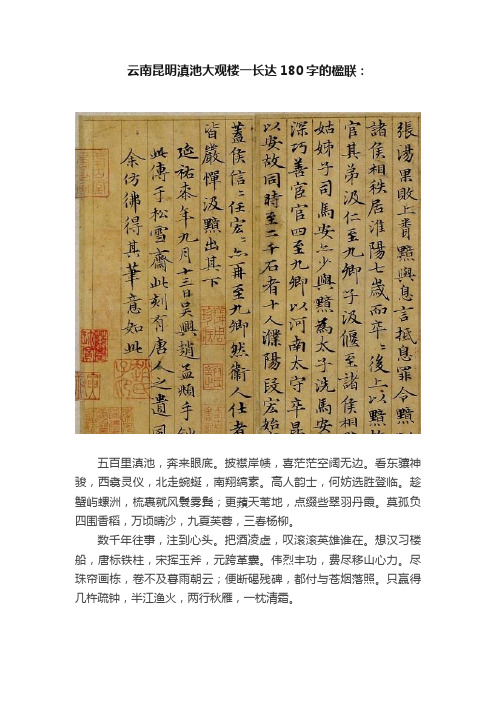 云南昆明滇池大观楼一长达180字的楹联：
張湯果敗上聞黯與息言抵息罪令黯
諸侯相秩居淮陽七歲而卒〻後上以黯
官其弟汲仁至九卿子汲偃至諸侯相
姑姊子司馬安亦少與黯為太子洗馬安
深巧善宦官四至九卿以河南太守卒昆
以安故同時至二千石者十人濮陽段宏始
蓋侯信〻任宏〻亦再至九卿然衛人仕者
皆嚴憚汲黯出其下
延祐柒年九月十三日吳興趙孟頫手鈔
此傳于松雪齋此刻有唐人之遺風
余仿彿得其筆意如此
五百里滇池，奔来眼底。披襟岸帻，喜茫茫空阔无边。看东骧神
骏，西翥灵仪，北走蜿蜒，南翔缟素。高人韵士，何妨选胜登临。趁
蟹屿螺洲，梳裹就风鬟雾鬓；更蘋天苇地，点缀些翠羽丹霞。莫孤负
四围香稻，万顷晴沙，九夏芙蓉，三春杨柳。
数千年往事，注到心头。把酒凌虚，叹滚滚英雄谁在。想汉习楼
船，唐标铁柱，宋挥玉斧，元跨革囊。伟烈丰功，费尽移山心力。尽
珠帘画栋，卷不及暮雨朝云；便断碣残碑，都付与苍烟落照。只赢得
几杵疏钟，半江渔火，两行秋雁，一枕清霜。